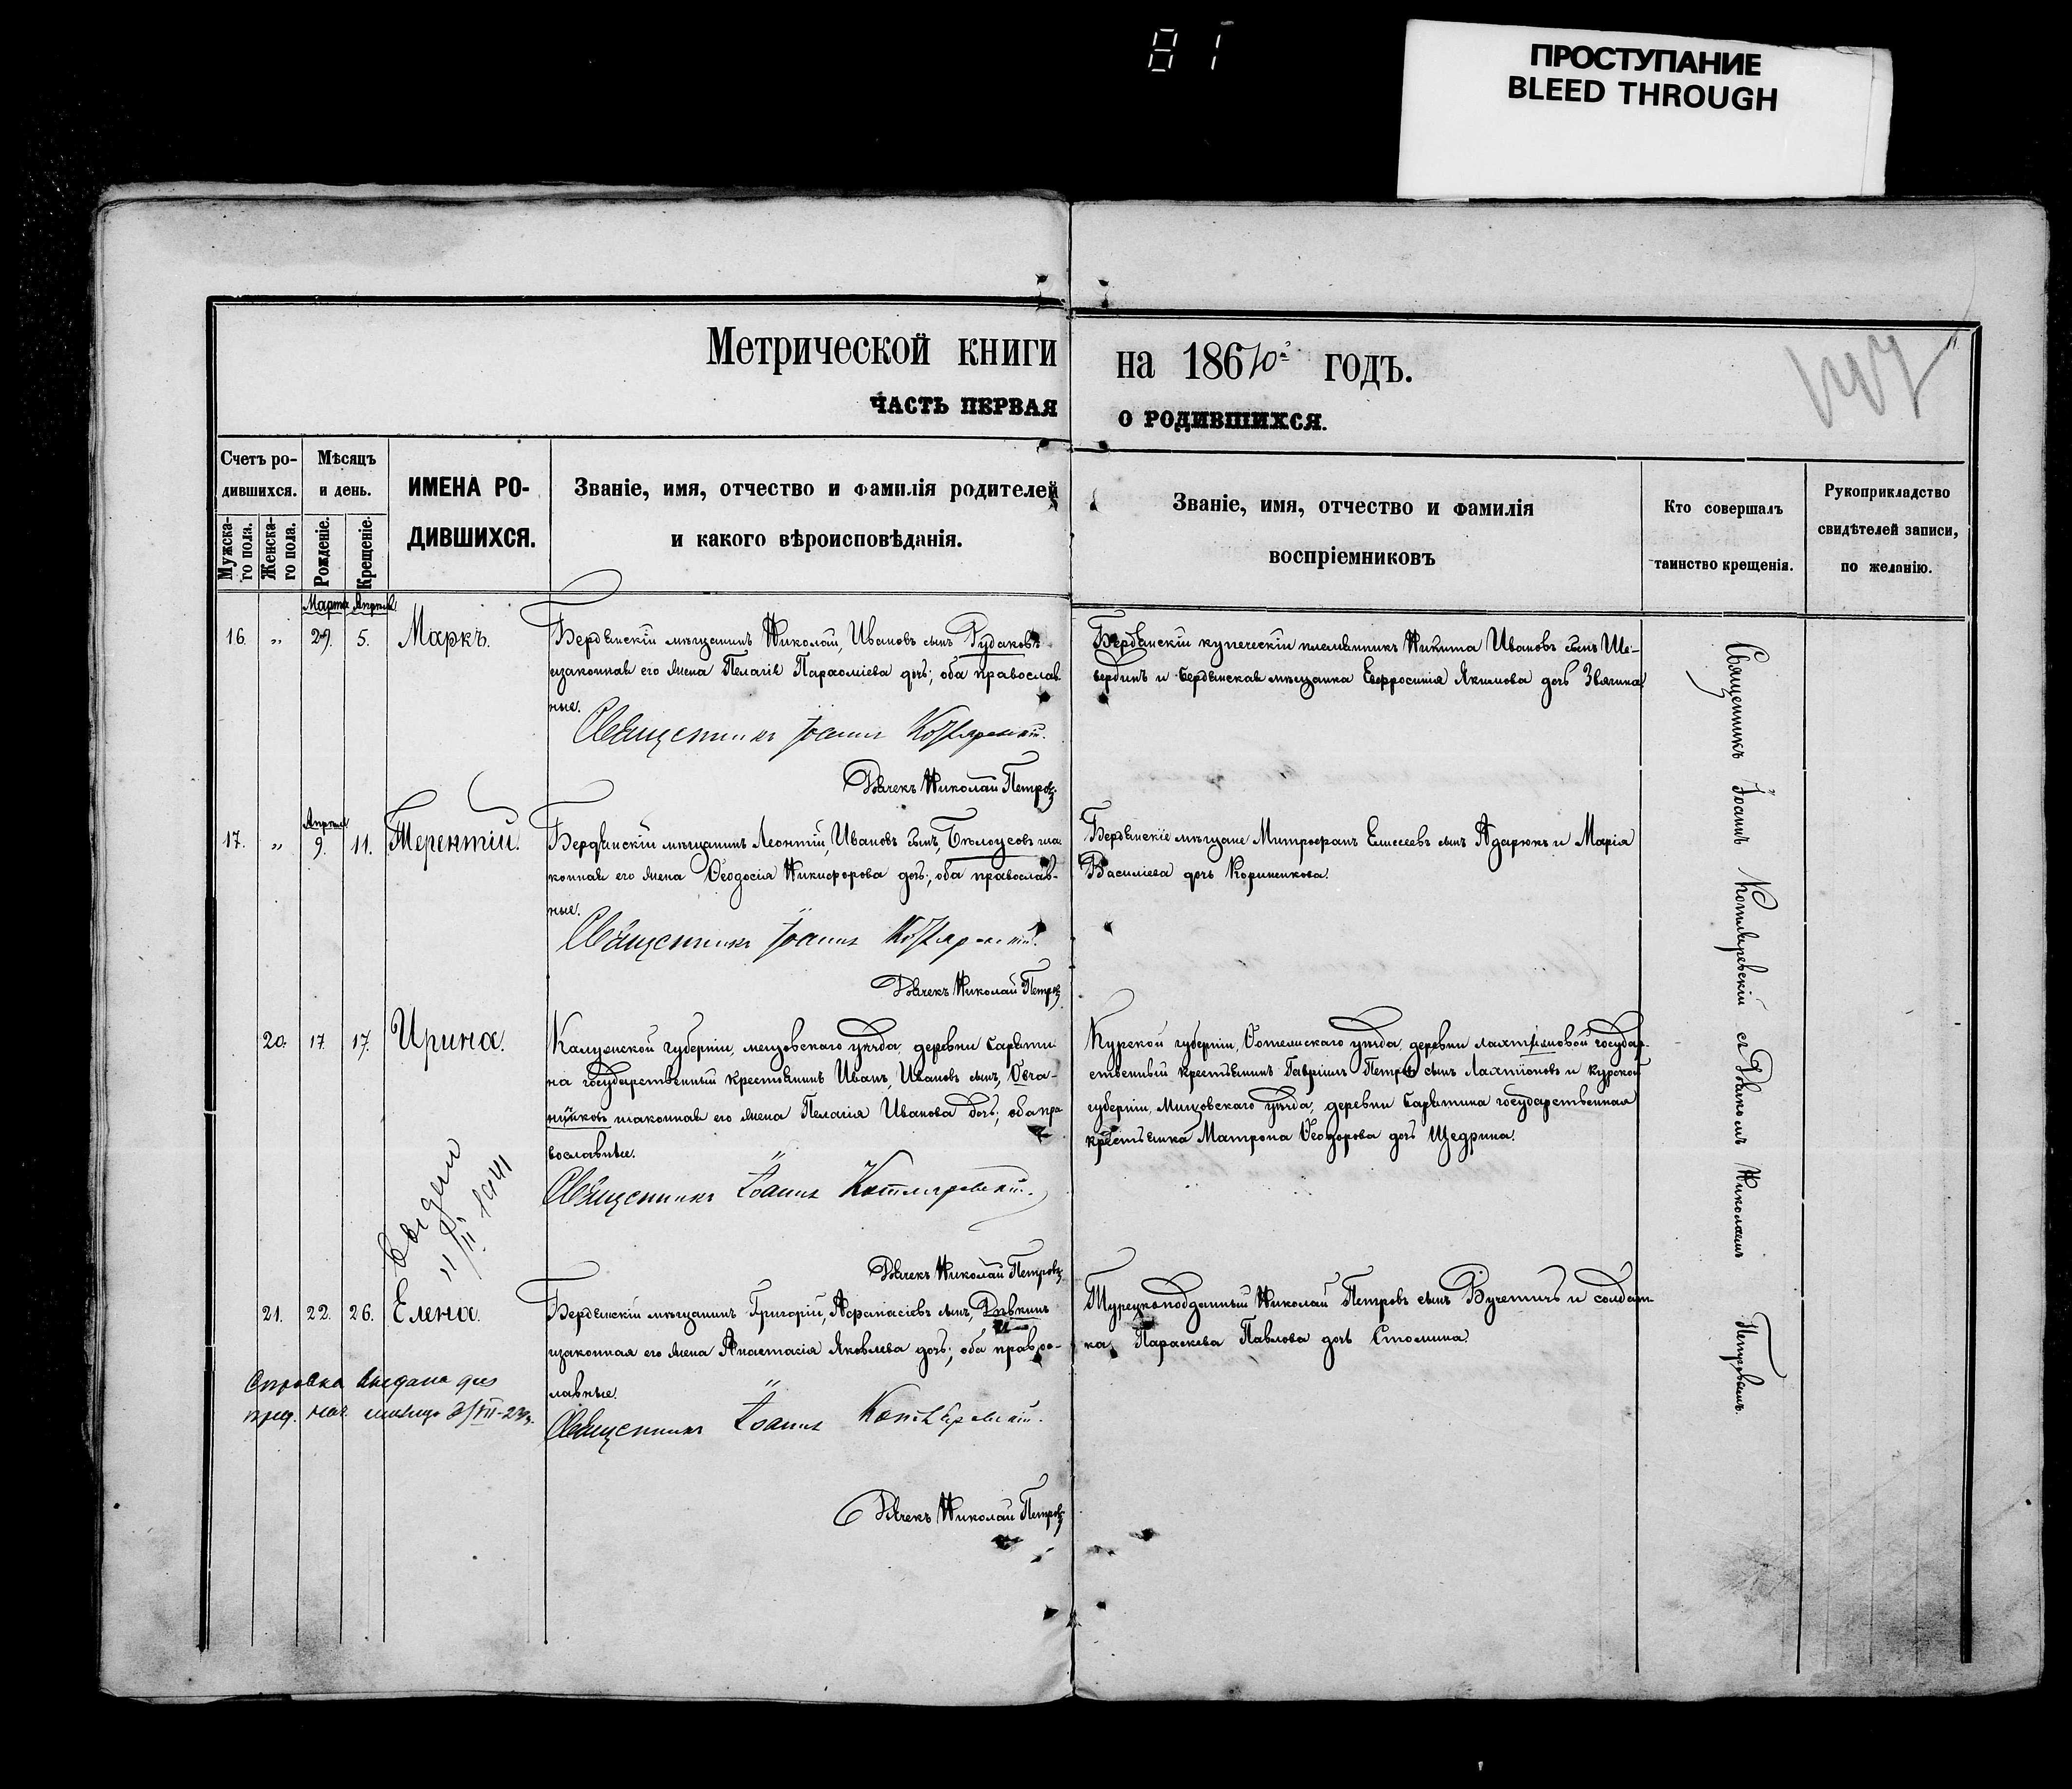 81
ПРОСТУПАНИЕ
BLEED THROUGH
Метрической книги на 1870 годъ.
ЧАСТЬ ПЕРВАЯ О РОДИВШИХСЯ.
Счетъ родившихся.
Мужскаго пола.
Женскаго пола.
Мѣсяцъ и день.
Рожденіе.
Крещеніе.
ИМЕНА РОДИВШИХСЯ.
Званіе, имя, отчество и фамилія родителей
и какого вѣроисповѣданія.
Званіе, имя, отчество и фамилія
воспріемниковъ
Кто совершалъ
таинство крещенія.
Рукоприкладство
свидѣтелей записи,
по желанію.
Марта Апрѣля
16. „ 29. 5. Маркъ.
Бердянскій мѣщанинъ Николай, Ивановъ сынъ Рудаковъ
изаконная его жена Пелагія Парѳоміева дочь; оба православ
ные.
Священникъ Іоаннъ Котляревскій.
Дьячекъ Николай Петровъ
Бердянскій купеческій племянникъ Никита Ивановъ сынъ Ще-
вердинъ и бердянская мѣщанка Евфросинія Якимова дочь Звягина
Апрѣля
17. „ 9. 11. Терентій.
Бердянскій мѣщанинъ Леонтій, Ивановъ сынъ, Бѣлоусовъ иза
конная его жена Ѳеодосія Никифорова дочь; оба православ-
ные.
Священникъ Іоаннъ Котляревскій.
Дьячекъ Николай Петровъ
Бердянскіе мѣщане Митрофанъ Елисеевъ сынъ Адарюкъ и Марія
Василіева дочь Кориненкова.
20. 17. 17. Ирина.
Калужской губерніи, мещовскаго уѣзда, деревни Сарѣти
на государственный крестьянинъ Иванъ, Ивановъ сынъ, Овча-
нниковъ изаконная его жена Пелагія Иванова дочь; оба пра
вославные.
Священникъ Іоаннъ Котляревскій.
Дьячекъ Николай Петровъ
Курской губерніи, уѣзда, деревни Лахтіоновой государ-
ственный крестьянинъ Гавріилъ Петровъ сынъ Лахтіоновъ и курской
губерніи, Мицовскаго уѣзда, деревни Сарѣтина государственная
крестьянка Матрона Ѳеодорова дочь Щедрина.
Выдан
11/II 1941
21. 22. 26. Елена.
Бердянскій мѣщанинъ Григорій, Аѳанасіевъ сынъ, Дѣвкинъ
изаконная его жена Анастасія Яковлева дочь; оба правос-
лавные.
Священникъ Іоаннъ Котляревскій.
Дьячекъ Николай Петровъ
Турецкоподданный Николай Петровъ сынъ Вучетичъ и солдат
ка Параскева Павлова дочь Стомина.
Справка выдана
VII-23 г.
Священникъ Іоаннъ Котляревскій съ Дьячкомъ Николаемъ Петровымъ.